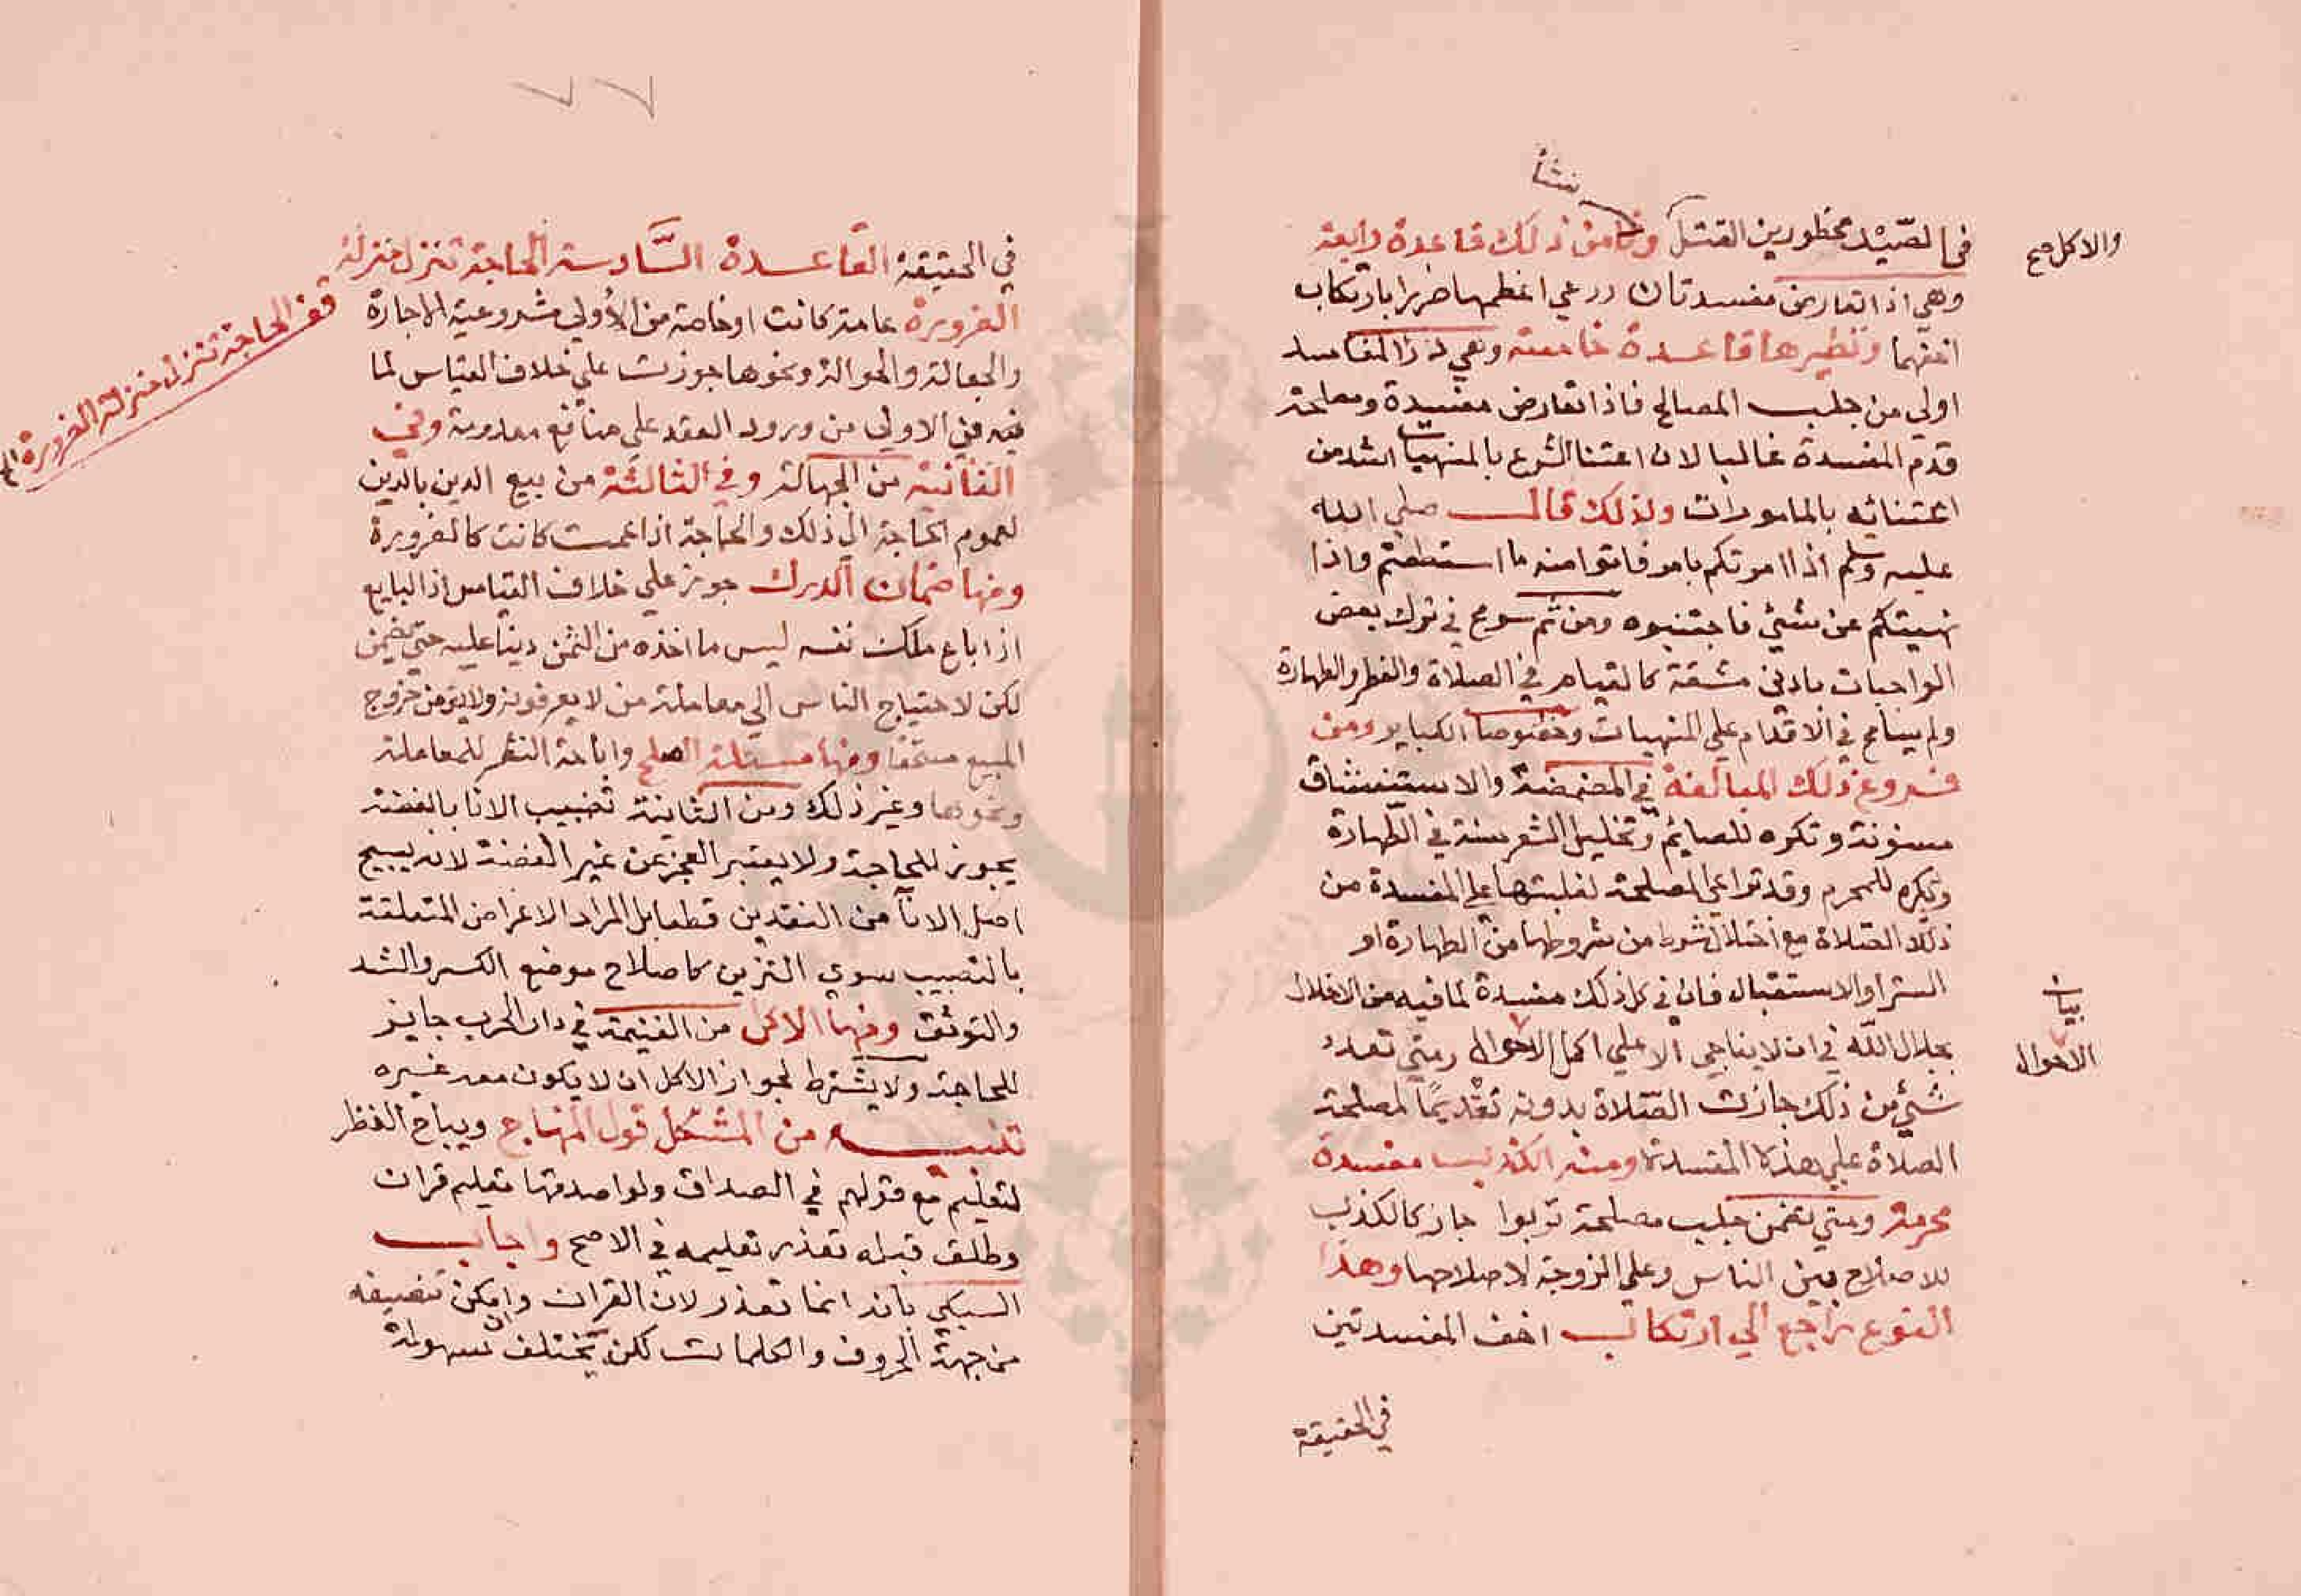 نشأ
في الصيد محظورين القتل ومن ذلك قاعدة رابعة
والاكل صح
وهي اذا تعارض مفسدتان روعي اعظمها ضررا بارتكاب
اخفهما ونظيرها قاعدة خامسة وهي درء المفاسد
اولي من جلب المصالح فاذا تعارض مفسدة ومصلحة
قدم المفسدة غالبا لان اعتنا الشرع بالمنهيات اشد من
اعتنائه بالمامورات ولذلك قال صلي الله
عليه وسلم اذا امرتكم بامر فاتوا منه ما استطعتم واذا
نهيتكم عن شئي فاجتنبوه ومن ثم سومح في ترك بعض
الواجبات بادني مشقة كالقيام في الصلاة والفطر والطهارة
ولم يسامح في الاقدام علي المنهيات وخصوصا الكباير ومن
فروع ذلك المبالغة في المضمضة والاستنشاق
مسنونة وتكره للصائم وتخليل الشعر سنة في الطهارة
ويكره للمحرم وقد تراعي المصلحة لغلبتها علي المفسدة من
ذلك الصلاة مع اختلال شرط من شروطها من الطهارة او
الستر او الاستقبال فان في كل ذلك مفسدة لما فيه من الاخلال
بجلال الله في ان لا يناجي الا علي اكمل الاحوال ومتي تعذر
بيان
الاحوال
شئي من ذلك جازت الصلاة بدونه تقديما لمصلحة
الصلاة علي هذه المفسدة ومنه الكذب مفسدة
محرمة ومتي تضمن جلب مصلحة تربوا جاز كالكذب
للاصلاح بين الناس وعلي الزوجة لاصلاحها وهذا
النوع راجع الي ارتكاب اخف المفسدتين
في الحقيقة
٧٧
في الحقيقة القاعدة السادسة الحاجة تنزل منزلة
قف الحاجة تنزل منزلة الضرورة
الضرورة عامة كانت او خاصة من الأولي مشروعية الاجارة
والجعالة والحوالة ونحوها جوزت علي خلاف القياس لما
فيه في الاولي من ورود العقد علي منافع معدومة وفي
الثانية من الجهالة وفي الثالثة من بيع الدين بالدين
لعموم الحاجة الي ذلك والحاجة اذا عمت كانت كالضرورة
ومنها ضمان الدرك جوز علي خلاف القياس اذ البايع
اذا باع ملك نفسه ليس ما اخذه من الثمن دينا عليه حتي يضمن
لكن لاحتياج الناس الي معاملة من لا يعرفونه ولا يؤمن خروج
المبيع مستحقا ومنها مسئلة الصلح واباحة النظر للمعاملة
ونحوها وغير ذلك ومن الثانية تضبيب الانا بالفضة
يجوز للحاجة ولا يعتبر العجز عن غير الفضة لانه يبيح
اصل الانا من النقدين قطعا بل المراد الاغراض المتعلقة
بالتضبيب سوي التزين كاصلاح موضع الكسر والشد
والتوثق ومنها الاكل من الغنيمة في دار الحرب جايز
للحاجة ولا يشترط لجواز الاكل ان لا يكون معه غيره
تنبيه من المشكل قول المنهاج ويباح النظر
لتعليم مع قولهم في الصداق ولو اصدقها تعليم قران
وطلق قبله تعذر تعليمه في الاصح واجاب
السبكي بانه انما تعذر لان القران وان امكن تنصيفه
من جهة الحروف والكلمات لكن يختلف سهولة